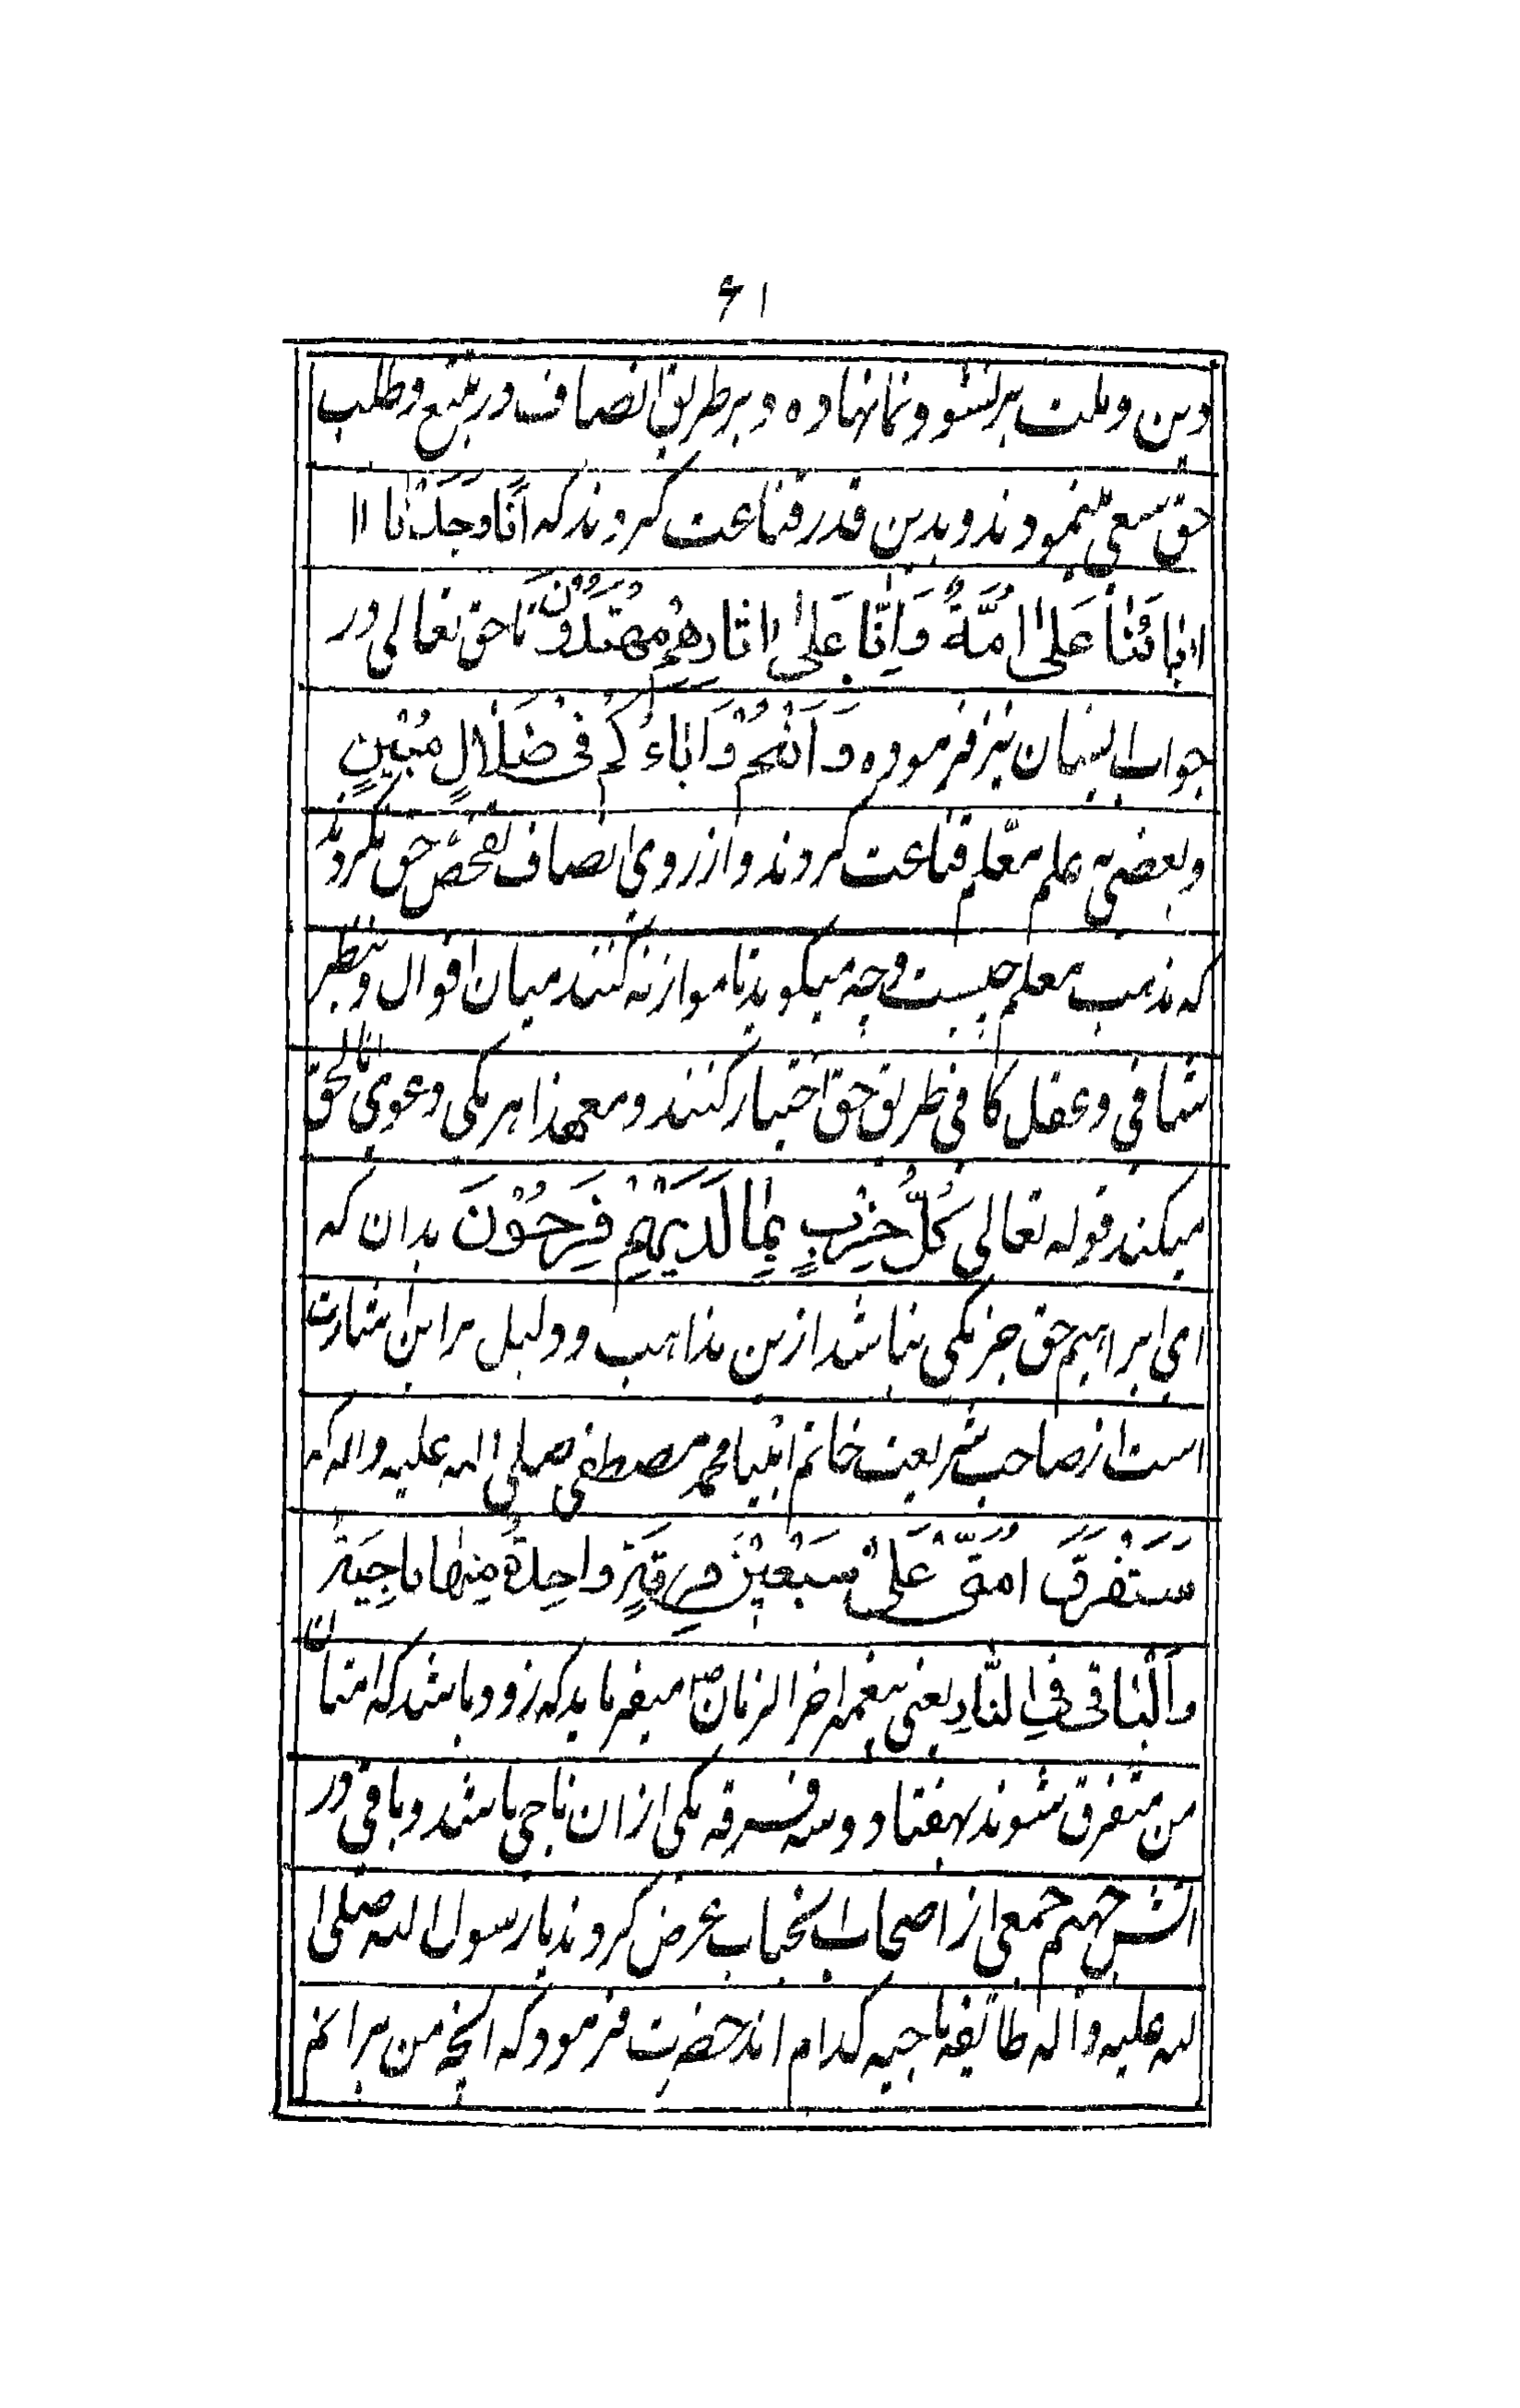 ۶۱
دین و ملت بر نشو و نما نهاده و بر طریق انصاف در تتبع و طلب
حق سعی ننمودند و بدین قدر قناعت کردند که اَنَّا وَجَدْنَا اا
ابَائَنَا عَلیٰ اُمَّةٌ وَاِنَّا عَلیٰ اٰثَارِهِمْ مُهْتَدُوْنَ تا حق تعالی در
جواب ایشان نیز فرموده وَ اَنْتُمْ وَ اٰبَاءُکُمْ فِیْ ضَلَالٍ مُبْیِنٍ
و بعضی به علم معلم قناعت کردند و از روی انصاف تفحص حق نکردند
که مذهب معلم چیست و چه میگوید تا موازنه کنند میان اقوال و بنظر
شافی و عقل کافی طریق حق اختیار کنند و معهذا هر یکی دعوی انا لحق
میکند قوله تعالی کُلُّ حِزْبٍ بِمَا لَدَیْهِمْ فَرِحُوْنَ بدان که
ای ابراهیم حق جز یکی نباشد ازین مذاهب و دلیل بر این بشارت
است از صاحب شریعت خاتم انبیا محمد مصطفی صلی الله علیه واله که
سَتَفْرَقُ اُمَّتِیْ عَلیٰ سَبْعِیْنَ فِرْقَةٍ وَاحِدَةٌ مِنْهَا نَاجِیَةٌ
وَالْبَاقِیْ فِی النَّارِ یعنی پیغمبر اخر الزمان ص میفرماید که زود باشد که امتان
من متفرق شوند بهفتاد و سه فرقه یکی ازان ناجی باشد و باقی در
اتش جهنم جمعی از اصحاب انجناب عرض کردند یا رسول الله صلی ا
لله علیه و اله طایفه ناجیه کدام اند حضرت فرمود که انچه من برانم